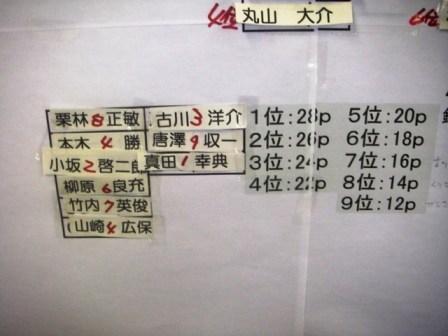 4位 丸山 大介
6位
栗林 8 正敏 古川 3 洋介 1位:28p 5位:20p
本木 4 勝 唐澤 9 収一 2位:26p 6位:18p
小坂 2 啓二郎 真田 1 幸典 3位:24p 7位:16p
柳原 6 良充 4位:22p 8位:14p
竹内 7 英俊 9位:12p
山崎 4 広保